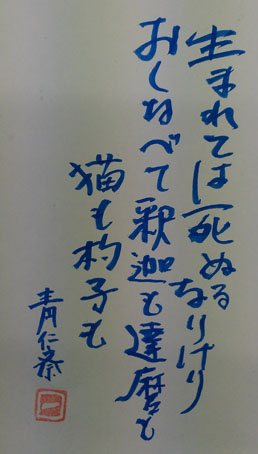 生まれては死ぬる
なりけり
おしなべて釈迦も達磨も
猫も杓子も
青仁祭